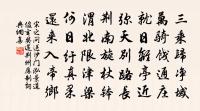 三乘歸净域
萬騎餞通莊
就日離亭近
彌天別路長
荊南旋杖鉢
渭北限津梁
何日紆真果
還來入帝鄉
宋之問送沙門泓景道
俊玄奘還荊州應制詞
典網集